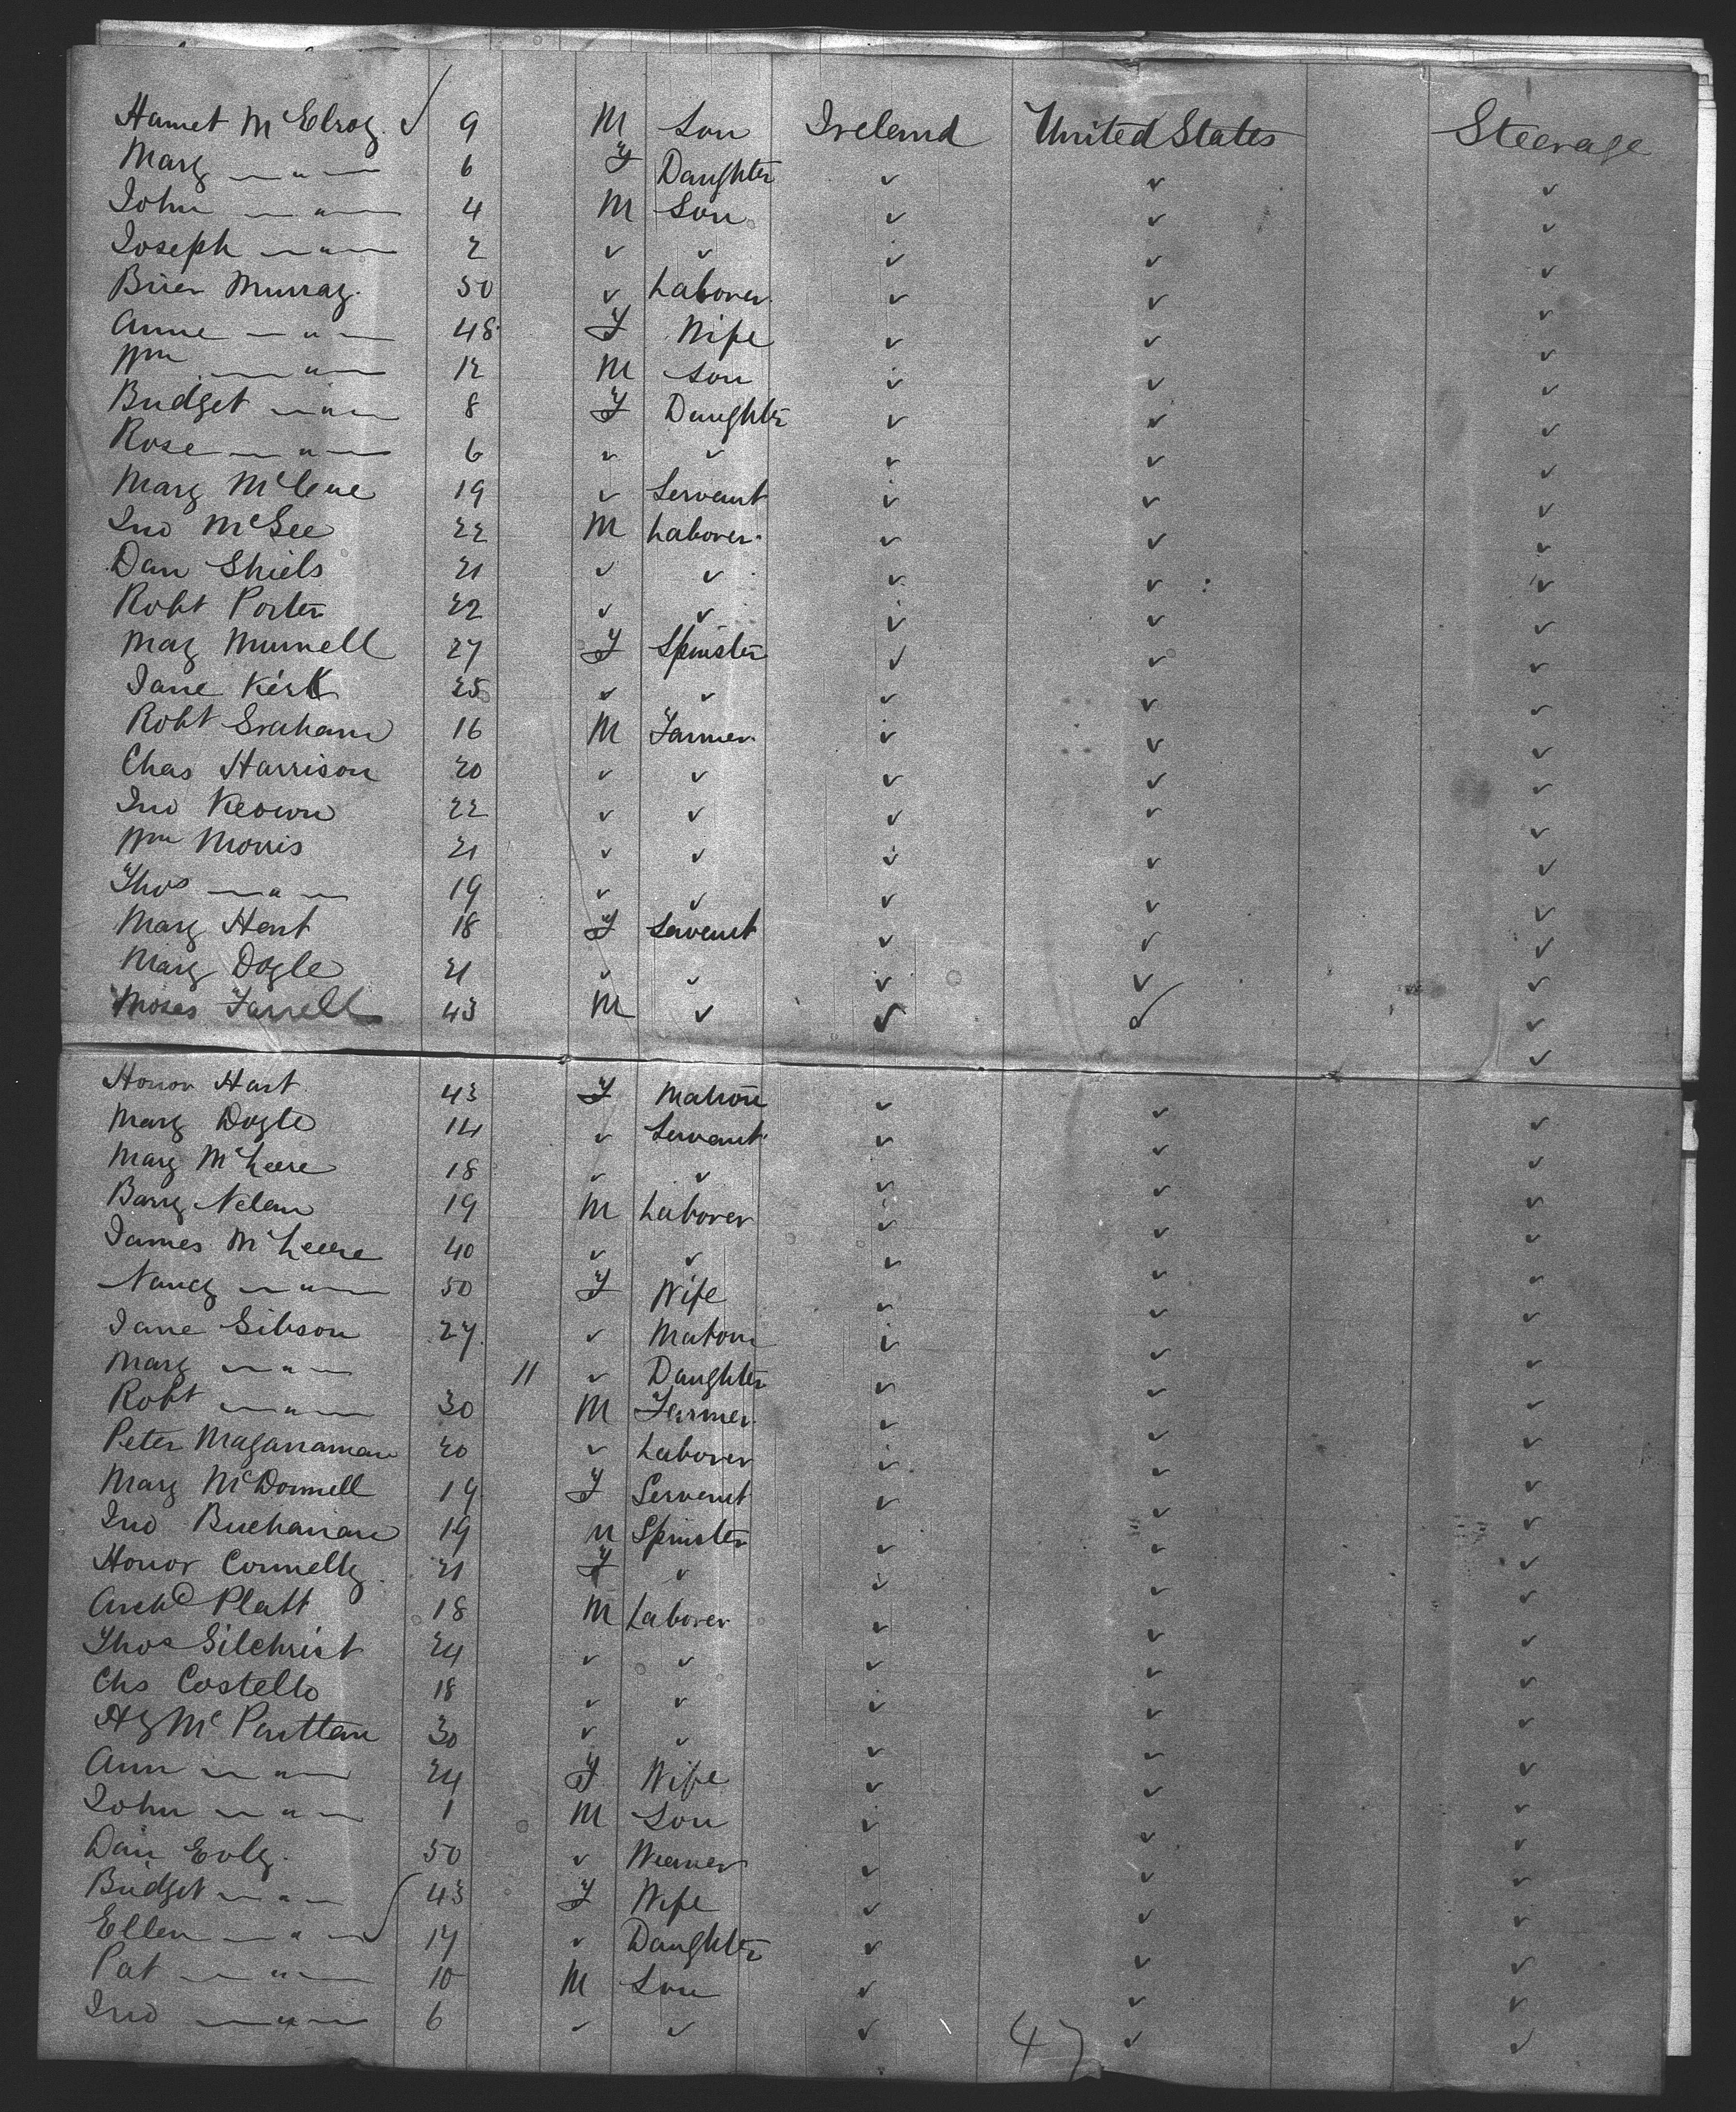 Hamet McElroy 9 M Son Ireland United States Steerage
Mary — " — 6 F Daughter ✓ ✓ ✓
John — " — 4 M Son ✓ ✓ ✓
Joseph — " — 2 ✓ ✓ ✓ ✓ ✓
Brien Murray 50 ✓ Laborer ✓ ✓ ✓
Anne — " — 48 F Wife ✓ ✓ ✓
Wm — " — 12 M Son ✓ ✓ ✓
Bridget — " — 8 F Daughter ✓ ✓ ✓
Rose — " — 6 ✓ ✓ ✓ ✓ ✓
Mary McCue 19 ✓ Servant ✓ ✓ ✓
Jno McGee 22 M Laborer ✓ ✓ ✓
Dan Shiels 21 ✓ ✓ ✓ ✓ ✓
Robt Porter 22 ✓ ✓ ✓ ✓ ✓
May Murnell 27 F Spinster ✓ ✓ ✓
Jane Kirk 25 ✓ ✓ ✓ ✓ ✓
Robt Graham 16 M Farmer ✓ ✓ ✓
Chas Harrison 20 ✓ ✓ ✓ ✓ ✓
Jno Keown 22 ✓ ✓ ✓ ✓ ✓
Wm Morris 21 ✓ ✓ ✓ ✓ ✓
Thos — " — 19 ✓ ✓ ✓ ✓ ✓
Mary Hart 18 F Servant ✓ ✓ ✓
Mary Dogle 21 ✓ ✓ ✓ ✓ ✓
Moses Farrell 43 M ✓ ✓ ✓ ✓
Honor Hart 43 F Matron ✓ ✓ ✓
Mary Dogle 14 ✓ Servant ✓ ✓ ✓
Mary McLeere 18 ✓ ✓ ✓ ✓ ✓
Barry Nelan 19 M Laborer ✓ ✓ ✓
James McLeere 40 ✓ ✓ ✓ ✓ ✓
Nancy — " — 50 F Wife ✓ ✓ ✓
Jane Gibson 27 ✓ Matron ✓ ✓ ✓
Mary — " — 11 ✓ Daughter ✓ ✓ ✓
Robt — " — 30 M Farmer ✓ ✓ ✓
Peter Maganaman 20 ✓ Laborer ✓ ✓ ✓
Mary McDonnell 19 F Servant ✓ ✓ ✓
Jno Buchanan 19 M Spinster ✓ ✓ ✓
Honor Connelly 21 F ✓ ✓ ✓ ✓
Archd Platt 18 M Laborer ✓ ✓ ✓
Thos Gilchrist 24 ✓ ✓ ✓ ✓ ✓
Chs Costello 18 ✓ ✓ ✓ ✓ ✓
Hy Mc Parttan 30 ✓ ✓ ✓ ✓ ✓
Ann — " — 24 F Wife ✓ ✓ ✓
John — " — 1 M Son ✓ ✓ ✓
Dan Evly 50 ✓ Weaver ✓ ✓ ✓
Bridget — " — 43 F Wife ✓ ✓ ✓
Ellen — " — 17 ✓ Daughter ✓ ✓ ✓
Pat — " — 10 M Son ✓ ✓ ✓
Jno — " — 6 ✓ ✓ ✓ ✓ ✓
47